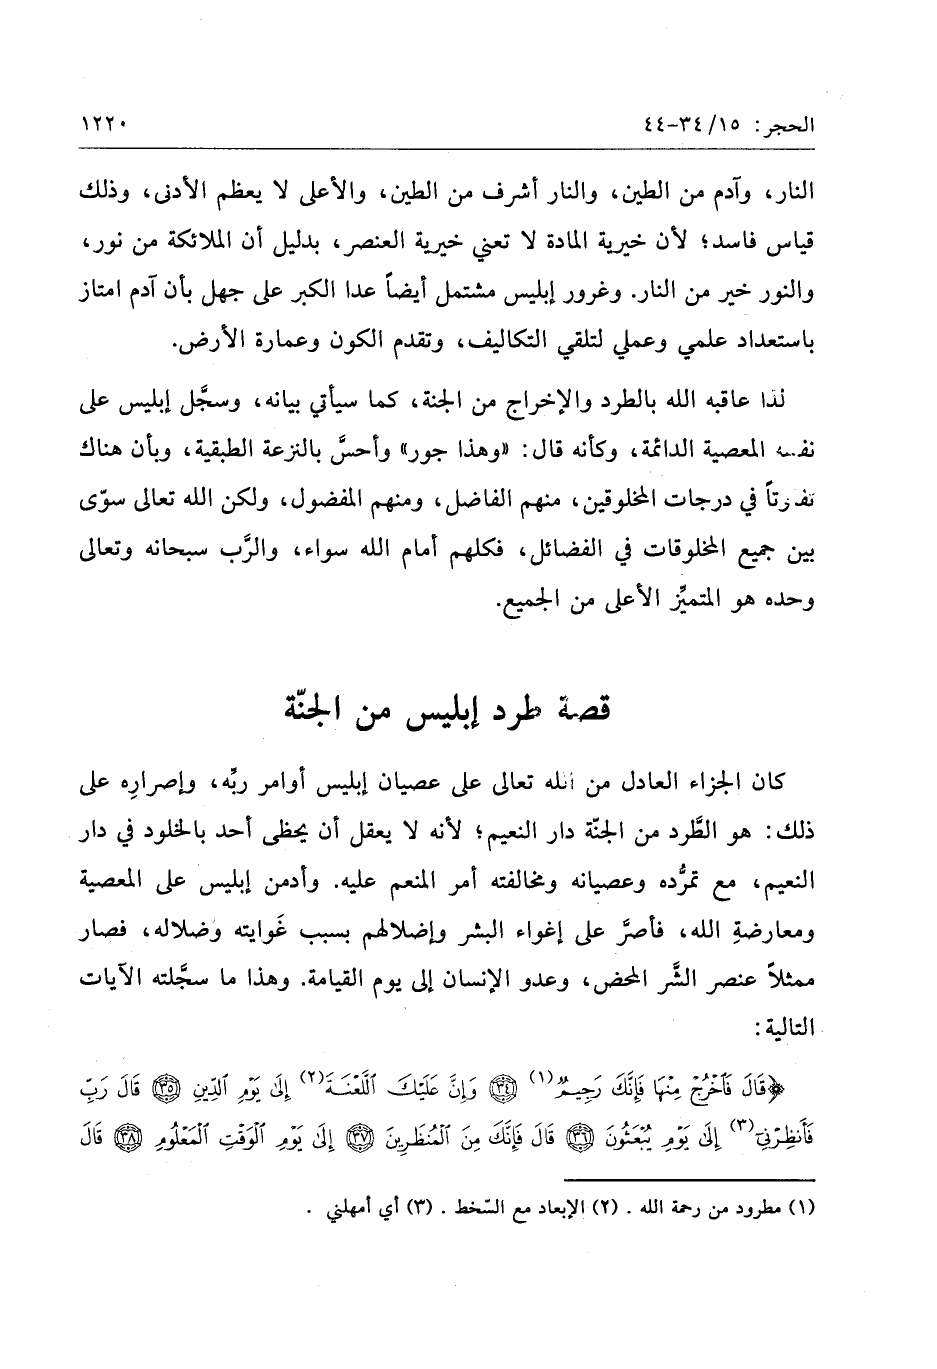 الحجر: ١٥/ ٣٤-٤٤ ١٢٢٠
النار، وآدم من الطين، والنار أشرف من الطين، والأعلى لا يعظم الأدنى، وذلك
قياس فاسد؛ لأن خيرية المادة لا تعني خيرية العنصر، بدليل أن الملائكة من نور،
والنور خير من النار. وغرور إبليس مشتمل أيضاً عدا الكبر على جهل بأن آدم امتاز
باستعداد علمي وعملي لتلقي التكاليف، وتقدم الكون وعمارة الأرض.
لذا عاقبه الله بالطرد والإخراج من الجنة، كما سيأتي بيانه، وسجَّل إبليس على
نفسه المعصية الدائمة، وكأنه قال: «وهذا جور» وأحسَّ بالنزعة الطبقية، وبأن هناك
تفاوتاً في درجات المخلوقين، منهم الفاضل، ومنهم المفضول، ولكن الله تعالى سوّى
بين جميع المخلوقات في الفضائل، فكلهم أمام الله سواء، والرَّب سبحانه وتعالى
وحده هو المتميِّز الأعلى من الجميع.
قصة طرد إبليس من الجنّة
كان الجزاء العادل من الله تعالى على عصيان إبليس أوامر ربِّه، وإصرارِه على
ذلك: هو الطَّرد من الجنّة دار النعيم؛ لأنه لا يعقل أن يحظى أحد بالخلود في دار
النعيم، مع تمرُّده وعصيانه ومخالفته أمر المنعم عليه. وأدمن إبليس على المعصية
ومعارضةِ الله، فأصرَّ على إغواء البشر وإضلالهم بسبب غَوايته وضلاله، فصار
ممثلاً عنصر الشَّر المحض، وعدو الإنسان إلى يوم القيامة. وهذا ما سجَّلته الآيات
التالية:
﴿قَالَ فَٱخْرُجْ مِنْهَا فَإِنَّكَ رَجِيمٌ(١) ٣٤ وَإِنَّ عَلَيْكَ ٱللَّعْنَةَ(٢) إِلَىٰ يَوْمِ ٱلدِّينِ ٣٥ قَالَ رَبِّ
فَأَنظِرْنِىٓ(٣) إِلَىٰ يَوْمِ يُبْعَثُونَ ٣٦ قَالَ فَإِنَّكَ مِنَ ٱلْمُنظَرِينَ ٣٧ إِلَىٰ يَوْمِ ٱلْوَقْتِ ٱلْمَعْلُومِ ٣٨ قَالَ
(١) مطرود من رحمة الله . (٢) الإبعاد مع السّخط . (٣) أي أمهلني .